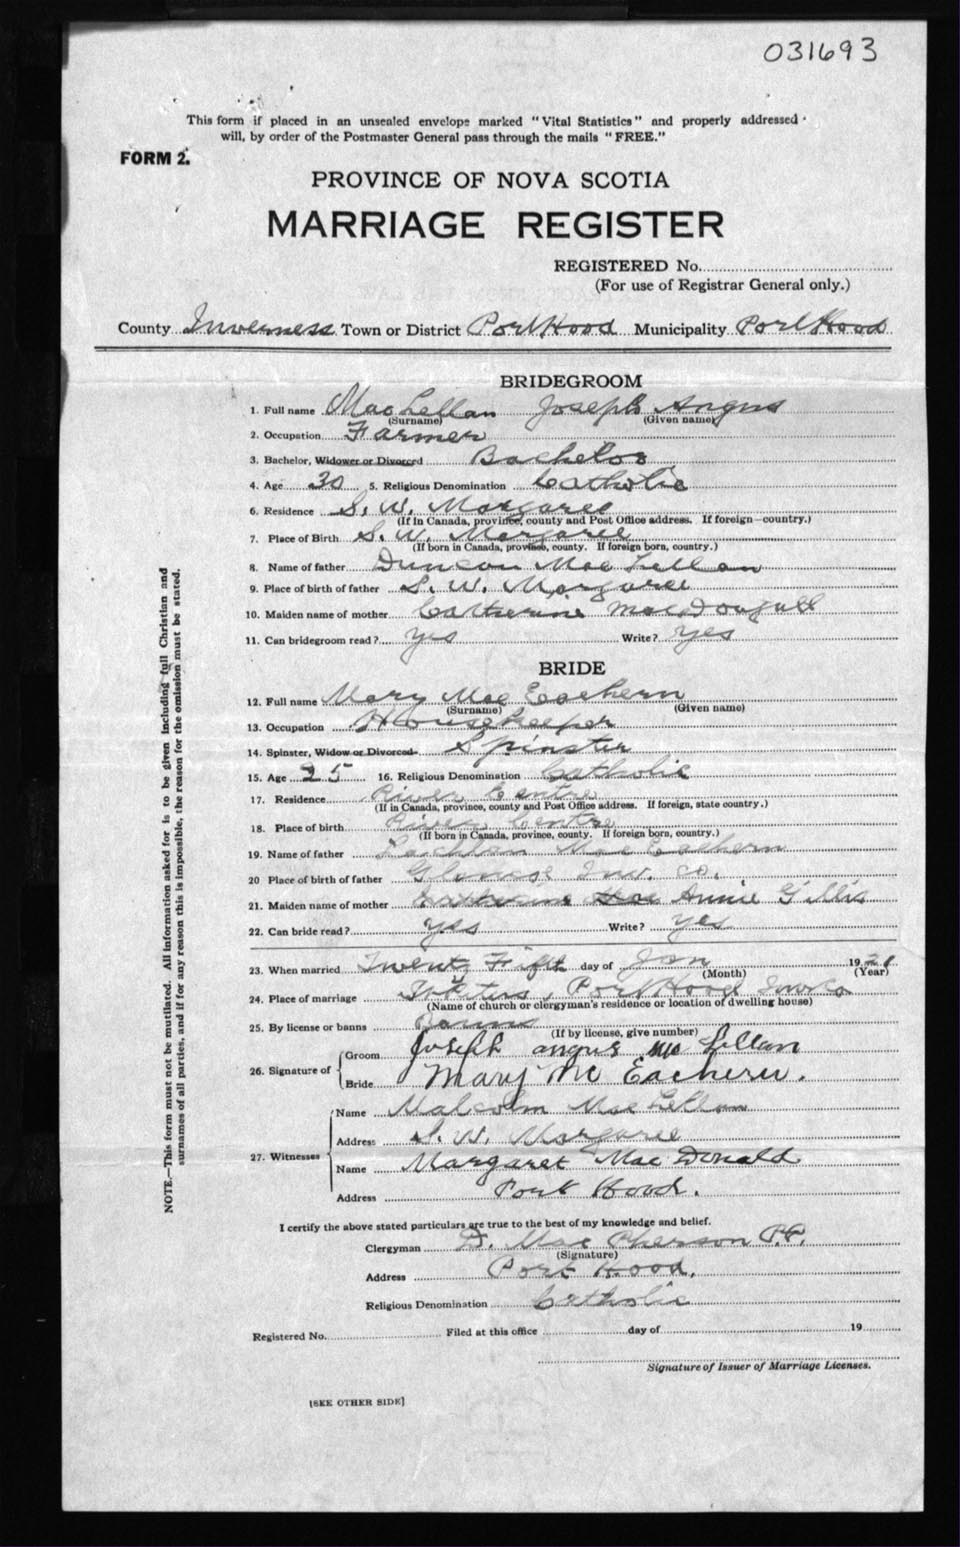 031693
This form if placed in an unsealed envelope marked "Vital Statistics" and properly addressed
will, by order of the Postmaster General pass through the mails "FREE."
FORM 2.
PROVINCE OF NOVA SCOTIA
MARRIAGE REGISTER
REGISTERED No.
(For use of Registrar General only.)
County Inverness Town or District Port Hood Municipality Port Hood
BRIDEGROOM
1. Full name MacLellan Joseph Angus
(Surname) (Given name)
2. Occupation Farmer
3. Bachelor, Widower or Divorced Bachelor
4. Age 30 5. Religious Denomination Catholic
6. Residence S. W. Margaree
(If in Canada, province, county and Post Office address. If foreign—country.)
7. Place of Birth S. W. Margaree
(If born in Canada, province, county. If foreign born, country.)
8. Name of father Duncan MacLellan
9. Place of birth of father S. W. Margaree
10. Maiden name of mother Catherine MacDougall
11. Can bridegroom read? yes Write? yes
BRIDE
12. Full name Mary MacEachern
(Surname) (Given name)
13. Occupation Housekeeper
14. Spinster, Widow or Divorced Spinster
15. Age 25 16. Religious Denomination Catholic
17. Residence River Centre
(If in Canada, province, county and Post Office address. If foreign, state country.)
18. Place of birth River Centre
(If born in Canada, province, county. If foreign born, country.)
19. Name of father Lachlan MacEachern
20 Place of birth of father Glencoe Inv. Co.
21. Maiden name of mother Catherine Mac Annie Gillis
22. Can bride read? yes Write? yes
23. When married Twenty Fifth day of Jan 1921
(Month) (Year)
24. Place of marriage St Peters, Port Hood Inv Co
(Name of church or clergyman's residence or location of dwelling house)
25. By license or banns Banns
(If by license, give number)
26. Signature of
Groom Joseph angus Mc Lellan
Bride Mary Mc Eachern.
27. Witnesses
Name Malcolm MacLellan
Address S. W. Margaree
Name Margaret MacDonald
Address Port Hood.
I certify the above stated particulars are true to the best of my knowledge and belief.
Clergyman D. MacPherson P.P.
(Signature)
Address Port Hood.
Religious Denomination Catholic
Registered No. Filed at this office day of 19
Signature of Issuer of Marriage Licenses.
[SEE OTHER SIDE]
NOTE.—This form must not be mutilated. All information asked for is to be given including full Christian and
surnames of all parties, and if for any reason this is impossible, the reason for the omission must be stated.